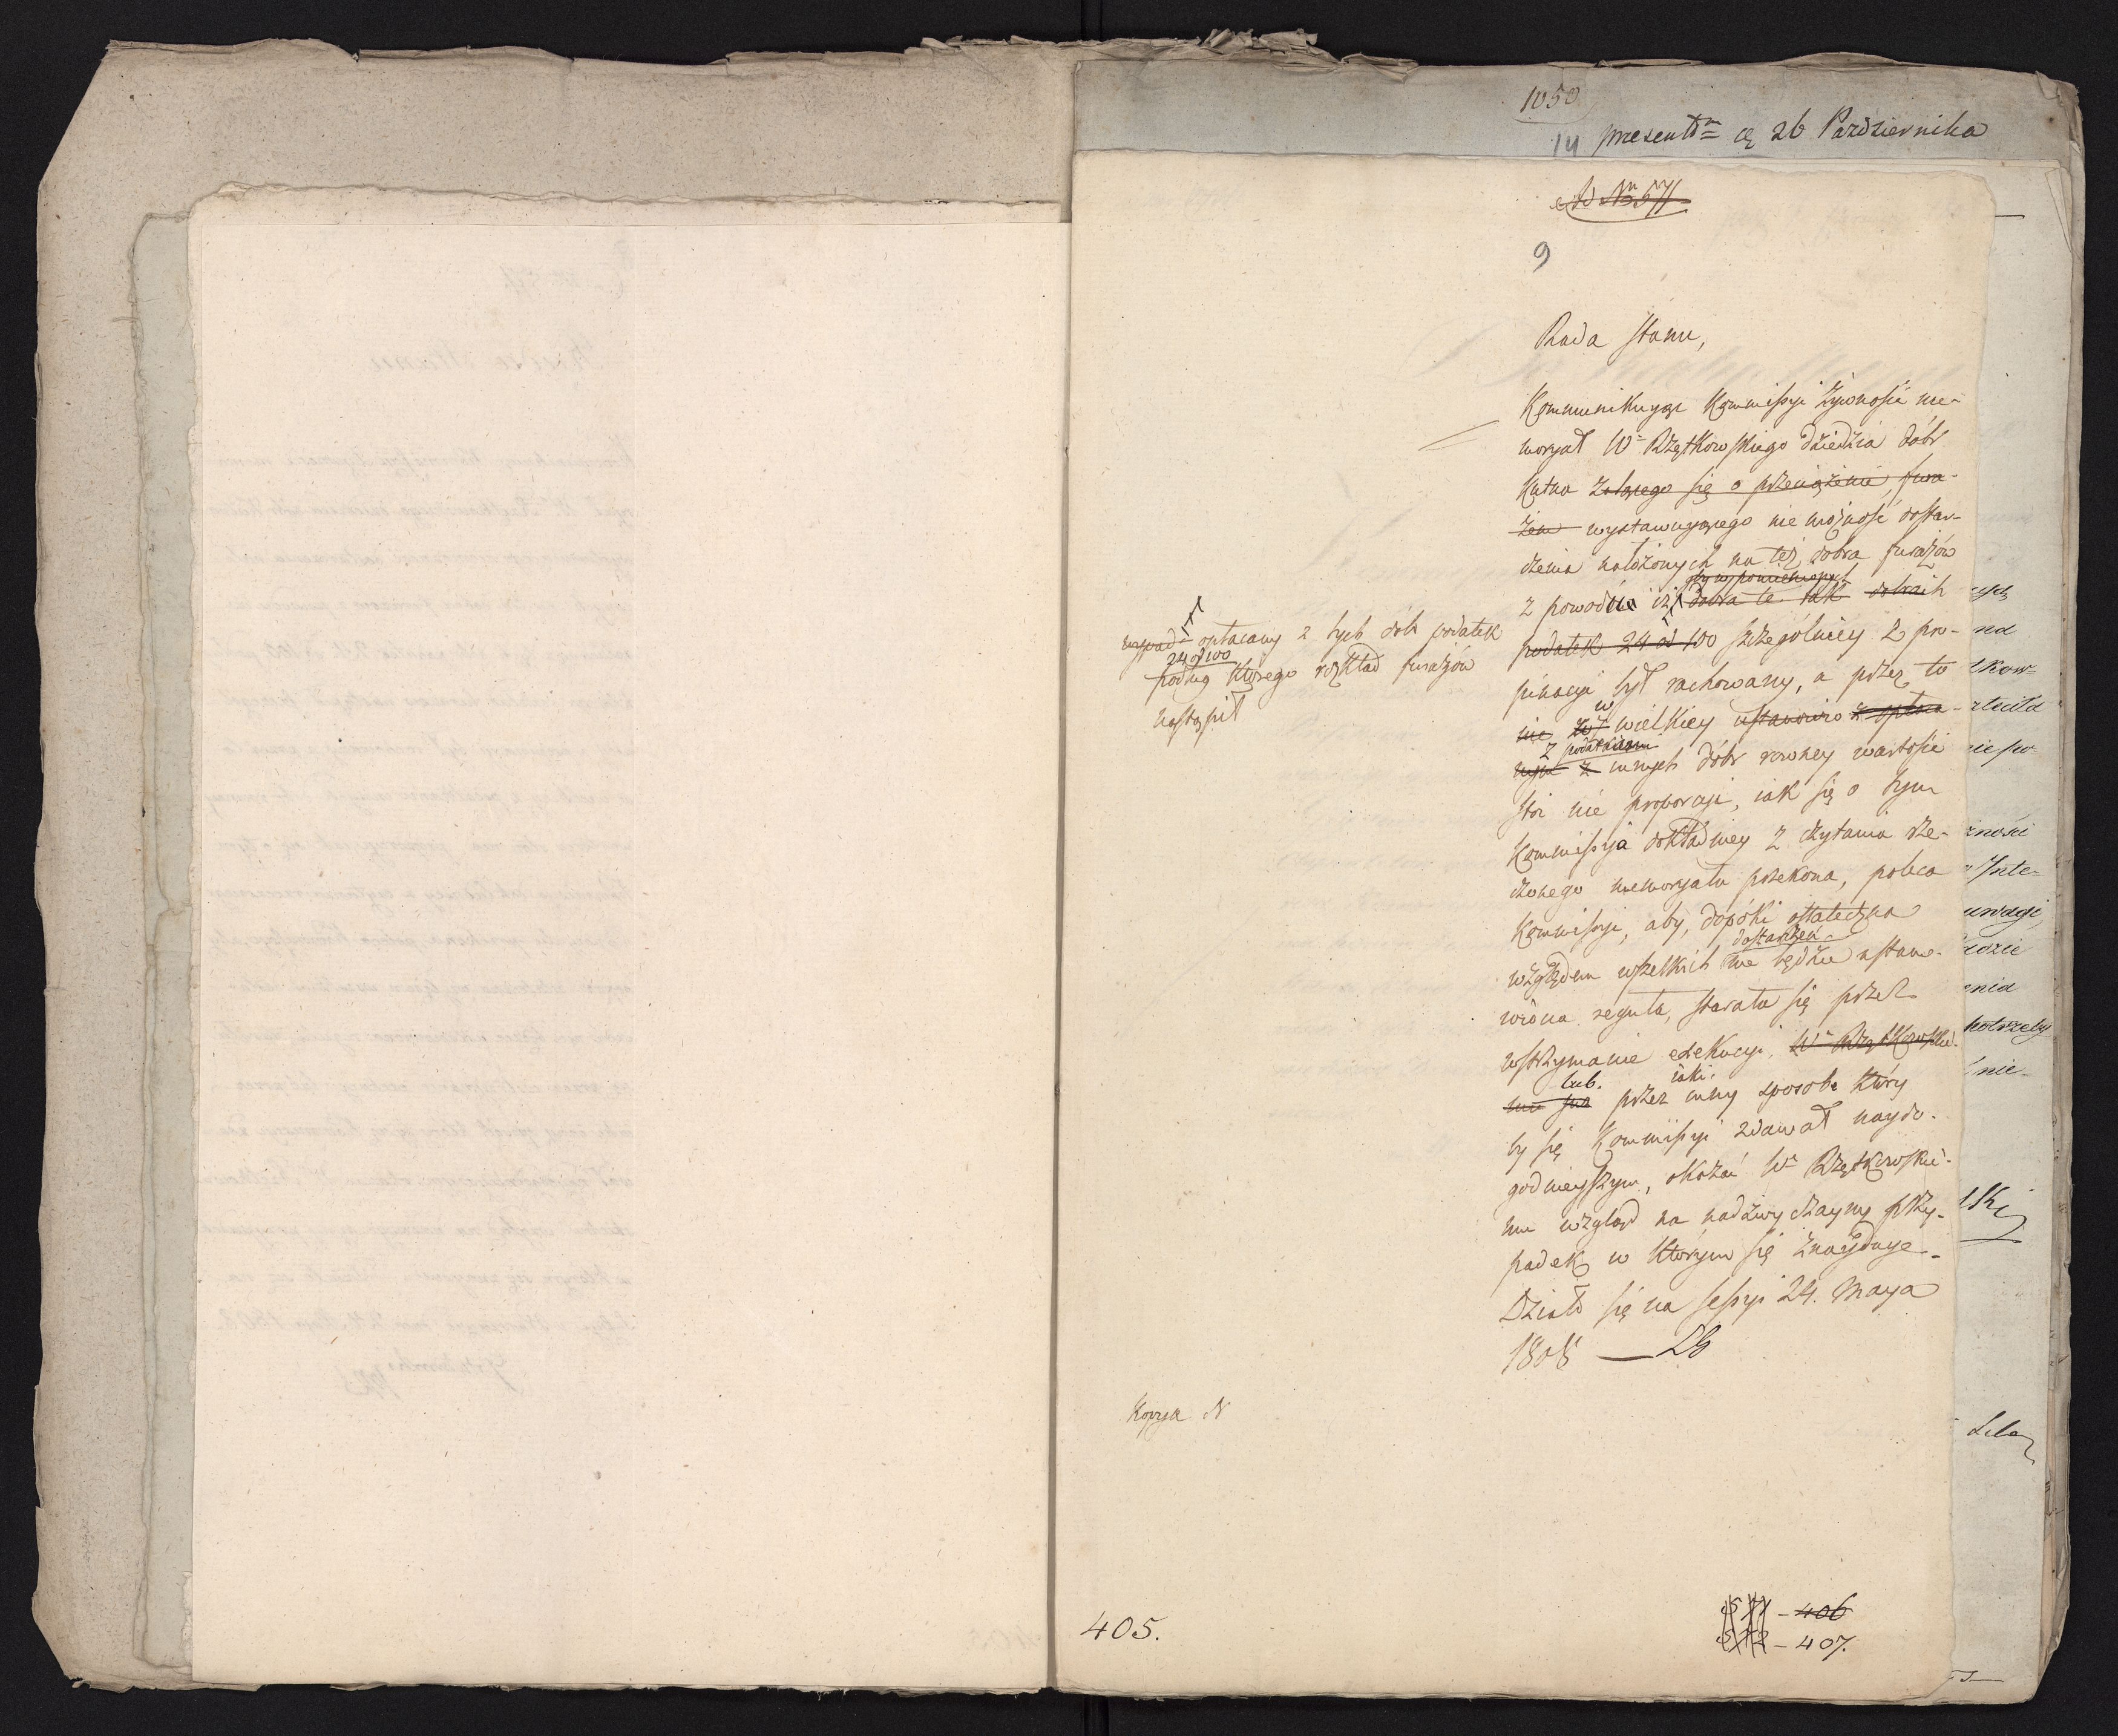 1050
14 presentdm a 26 Pazdziernika
Ad Nm 571
9
Rada Stanu,
Kommunikuyąc Kommissyi Żywności me-
moryał Wo Rzętkowskiego dziedzica dóbr
Kutna żalącego się o przeciążenie fura-
żem wystawuiącego niemożność dostar-
czenia nałożonych na też dobra furażów
wyspomnionych
z powodu iż dobra te iak dobrach
podatek 24 od 100 szczególniey z pro-
pinacyi był rachowany, a przez to
w
nie w wielkiey ustanowiono z opłaca-
z podatkiem
nym z innych dóbr równey wartości
stoi nie proporcyi, iak się o tym
Kommissyja dokładniey z czytania rze-
czonego memoryału przekona, poleca
Kommissyi, aby, dopóki ostateczna
dostarczeń
względem wszelkich nie będzie ustano-
wiona reguła, starała się przez
wstrzymanie exekucyi, Wo Rzętkowskie-
lub. iaki.
mu przez inny sposób który
by się Kommissyi zdawał naydo-
godnieyszym, okazać Wo Rzętkowskie-
mu wzgląd na nadzwyczayny przy-
padek w którym się znayduye.
Działo się na sessyi 24. Maya
1808
opłacany z tych dóbr podatek
24 od 100
podług którego rozkład furażów
nastąpił
Kopyja N
405.
571 - 406
572 - 407.